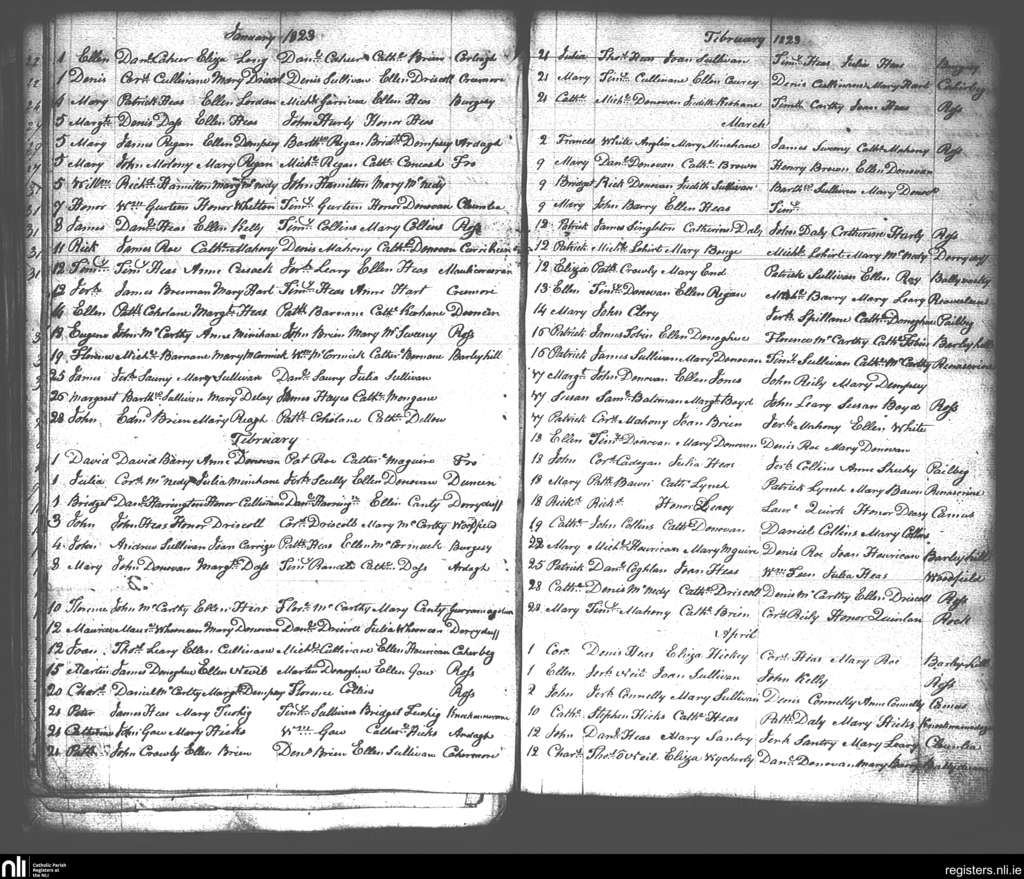 January 1823
1 Ellen Danl. Caher Eliza Long Danl. Caher Cathe. Brien
1 Denis Corls. Cullinane Mary Driscol Denis Sullivan Ellen Driscoll Creamore
4 Mary Patrick Heas Ellen Lordan Michl. Ellen Heas Burgesy
5 Margt. Denis Doss Ellen Heas John Hurly Honor Heas
5 Mary James Regan Ellen Dempsey Barthw. Regan Bridt. Dempsey Ardagh
5 Mary John Molony Mary Regan Michl. Regan Cathe. Fro
5 Willm. Richd. Hamilton Margt. McNedy John Hamilton Mary McNedy
7 Honor Wm. Gurteen Honor Whelton Timy. Gurteen Honor Donovan
8 James Danl. Heas Ellen Kelly Timy. Collins Mary Collins Ross
11 Rick James Roe Cathe. Mahony Denis Mahony Cathe. Donovan
12 Timy. Timy. Heas Anne Cusack Jerh. Leary Ellen Heas
13 Jerh. James Brennan Mary Hart Timy. Heas Anne Hart Creamore
14 Ellen Patk. Coholane Margt. Heas Patk. Barnane Cathe. Keohane
18 Eugene John McCarthy Anne Minihane John Brien Mary McSweny Ross
19 Florence Michl. Barnane Mary McCormick Wm. McCormick Cathe. Barnane Barleyhill
25 James Jerh. Mary Sullivan Danl. Julia Sullivan
26 Margaret Barthw. Sullivan Mary Delay James Hayes Cathe. Mongane
28 John Edmd. Brien Mary Reagh Patk. Coholane Cathe.
February
1 David David Barry Anne Donovan Pat Roe Cathe. Maguire Fro
1 Julia Corls. McNedy Julia Minihane Jerh. Scully Ellen Donovan
1 Bridget Danl. Harrington Honor Cullinane Danl. Ellen Canty Derryduff
3 John John Heas Honor Driscoll Corls. Driscoll Mary McCarthy Woodfield
4 John Andrew Sullivan Joan Carrige Patk. Heas Ellen McCormick Burgesy
8 Mary John Donovan Margt. Doss Timy. Cathe. Doss Ardagh
10 Florence John McCarthy Ellen Flor. McCarthy Mary Canty
12 Maurice Maurce. Wheenan Mary Donovan Danl. Driscoll Julia Wheenan Derryduff
12 Joan Thos. Leary Ellen Cullinane Michl. Cullinane Ellen Hourican
15 Martin James Donoghue Ellen Nevil Martin Donoghue Ellen Gaw Ross
20 Chars. Daniel McCarthy Margt. Dempsey Florence Collins Ross
21 Peter James Heas Mary Tuohig Timy. Sullivan Bridget Tuohig
21 Catherine John Gaw Mary Hicks Wm. Gaw Cather. Hicks Ardagh
21 Patk. John Crowly Ellen Brien Denis Brien Ellen Sullivan Cahermore
February 1823
21 Julia Thos. Heas Joan Sullivan Timy. Heas Julia Heas Burgesy
21 Mary Timy. Cullinane Ellen Denis Cullinane Mary Hart
21 Cathe. Michl. Donovan Judith Keohane Timth. Carthy Joan Heas Ross
March
2 Frances White Anglin Mary Minehane James Sweny Cathe. Mahony Ross
9 Mary Danl. Donovan Cathe. Brown Henry Brown Ellen Donovan
9 Bridget Rick Donovan Judith Sullivan Barthw. Sullivan Mary
9 Mary John Barry Ellen Heas Timy.
12 Patrick James Singleton Catherine Daly John Daly Catherine Hurly Ross
12 Patrick Michl. Mary Michl. Mary McNedy Derryduff
12 Eliza Patk. Crowly Mary End Patrick Sullivan Ellen Roy
13 Ellen Timy. Donovan Ellen Regan Michl. Barry Mary Leary
14 Mary John Clery Jerh. Spillane Cathe. Donoghue
16 Patrick James Tobin Ellen Donoghue Florence McCarthy Cathe. Tobin Barleyhill
16 Patrick James Sullivan Mary Donovan Timy. Sullivan Cathe. McCarthy
17 Margt. John Donovan Ellen Jones John Reily Mary Dempsey
17 Susan Saml. Bateman Margt. Boyd John Leary Susan Boyd Ross
17 Patrick Corls. Mahony Joan Brien Jerh. Mahony Ellen White
18 Ellen Timy. Donovan Mary Donovan Denis Roe Mary Donovan
18 John Corls. Cadogan Julia Hess Jerh. Collins Anne
18 Mary Patk. Bawn Cathe. Lynch Patrick Lynch Mary Bawn
18 Rickd. Rickd. Honor Leary Laure. Quirk Honor Deasy
19 Cathe. John Collins Cathe. Donovan Daniel Collins Mary Collins
22 Mary Michl. Hourican Mary Mguire Denis Roe Joan Hourican Barleyhill
25 Patrick Danl. Coghlan Joan Heas Wm. Julia Heas Woodfield
28 Cathe. Denis McNedy Cathe. Driscoll Denis McCarthy Ellen Driscoll Ross
28 Mary Timy. Mahony Cathe. Brien Corls. Reily Honor Quinlan Rock
April
1 Cor. Denis Heas Eliza Hickey Corls. Heas Mary Roe Barleyhill
1 Ellen Jerh. Neil Joan Sullivan John Kelly Ross
2 John Jerh. Connelly Mary Sullivan Denis Connelly Anne Connelly
10 Cathe. Stephen Hicks Cathe. Heas Patk. Daly Mary Hicks
12 John Danl. Heas Mary Santry Jerh. Santry Mary Leary
12 Chars. Thos. O'Neil Eliza Wycherly Danl. Donovan Mary Barry
nli
Catholic Parish
Registers at
the NLI
registers.nli.ie